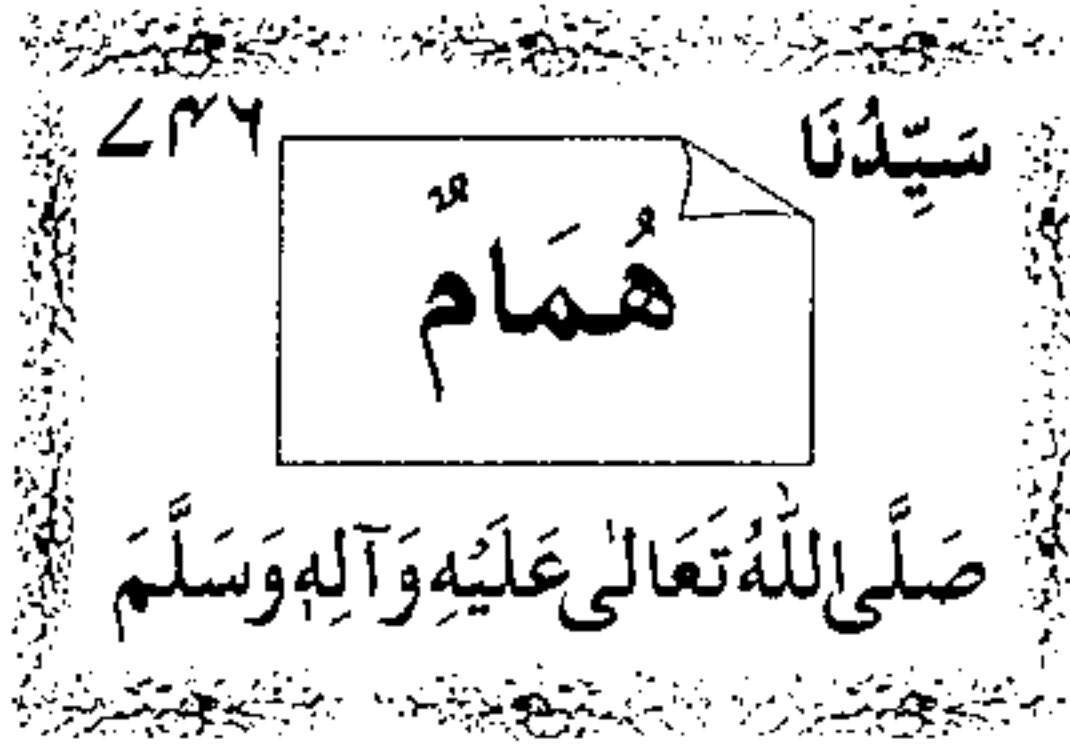 سَيِّدُنَا ۷۴۶
هُمَامٌ
صَلَّى اللّٰهُ تَعَالٰى عَلَيْهِ وَآلِهٖ وَسَلَّمَ